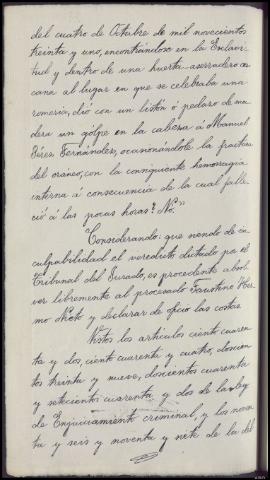 del cuatro de Octubre de mil novecientos
treinta y uno, encontrándose en la Esclavi-
tud y dentro de una huerta-aserradero cer-
cana al lugar en que se celebraba una
romeria, dió con un listón ó pedazo de ma-
dera un gólpe en la cabeza á Manuel
Pérez Fernández, ocasionándole la fractura
del cráneo, con la consiguiente hemorrágia
interna á consecuencia de la cual falle-
ció á las pocas horas? No."
"Considerando: que siendo de in-
culpabilidad el veredicto dictado por el
Tribunal del Jurado, es procedente absol-
ver libremente al procesado Faustino Her-
mo Nieto y declarar de oficio las costas
Vistos los artículos ciento cuaren-
ta y dos, ciento cuarenta y cuatro, doscien-
tos treinta y nueve, doscientos cuarenta
y setecientos cuarenta y dos de la Ley
de Enjuiciamiento criminal, y los noven-
ta y seis y noventa y siete de la del